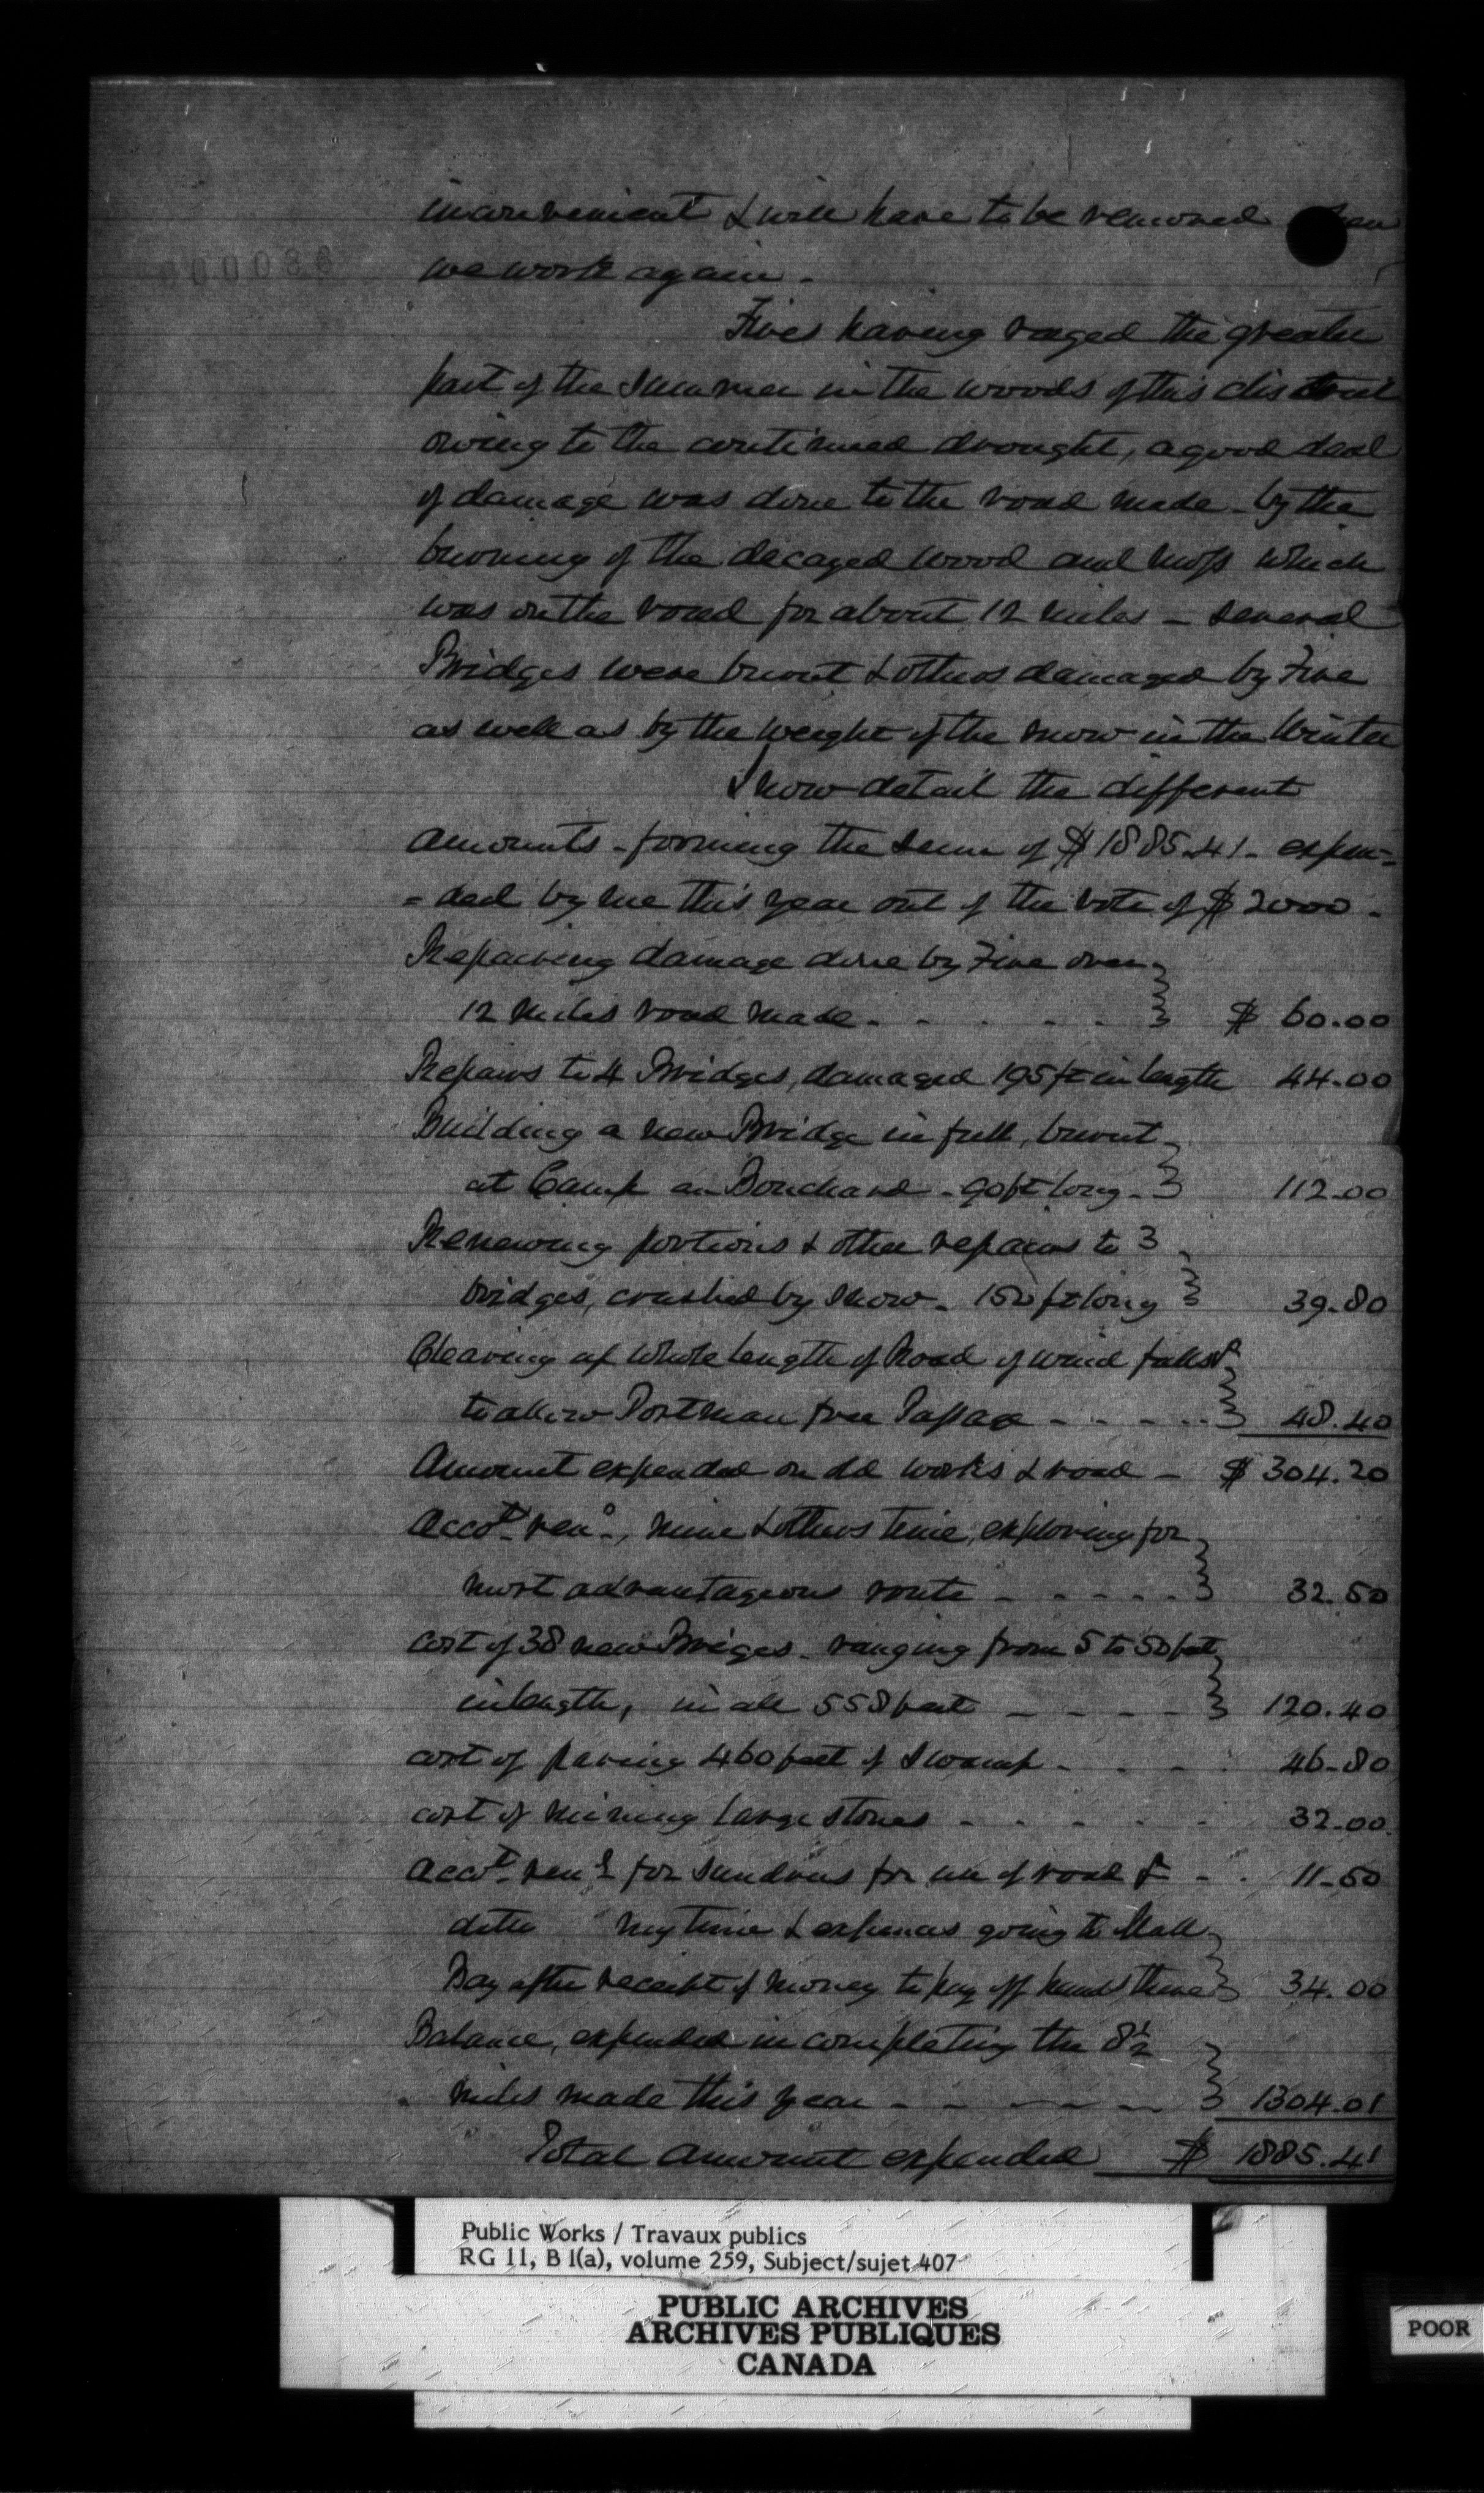 inconvenient & will have to be removed when
000086
we work again.
Fires having raged the greater
part of the Summer in the woods of this district
owing to the continued drought, a good deal
of damage was done to the road made - by the
burning of the decayed wood and moss which
was on the road for about 12 miles - several
Bridges were burnt & others damaged by Fire
as well as by the weight of the snow in the Winter
I now detail the different
amounts - forming the sum of $1885.41 - expen=
=ded by me this year out of the vote of $2000 -
Repairing damage done by Fire over
12 miles road made - - - - - $ 60.00
Repairs to 4 Bridges, damaged 195 ft in length 44.00
Building a new Bridge in full, burnt
at Camp au Bouchard - 90 ft long - 112.00
Renewing portions & other repairs to 3
bridges, crushed by Snow - 150 ft long 39.80
Clearing up whole length of Road of wind falls &c
to allow Postman free Passage - - - - 48.40
Amount expended on old works & road - $ 304.20
Accot. ren., mine & others time, exploring for
most advantageous route - - - - - 32.50
cost of 38 new Briges - ranging from 5 to 50 feet
in length, in all 558 feet - - - - 120.40
cost of paving 460 feet of Swamp - - - - 46.80
cost of mining large stones - - - - - 32.00
Accot. rend for sundries for use of road &c - - 11.50
ditto my time & expenses going to Mall
Bay after receipt of money to pay off hands there 34.00
Balance, expended in completing the 8½
miles made this year - - - - - 1304.01
Total amount expended $ 1885.41
Public Works / Travaux publics
RG 11, B 1(a), volume 259, Subject/sujet 407
PUBLIC ARCHIVES
ARCHIVES PUBLIQUES
CANADA
POOR